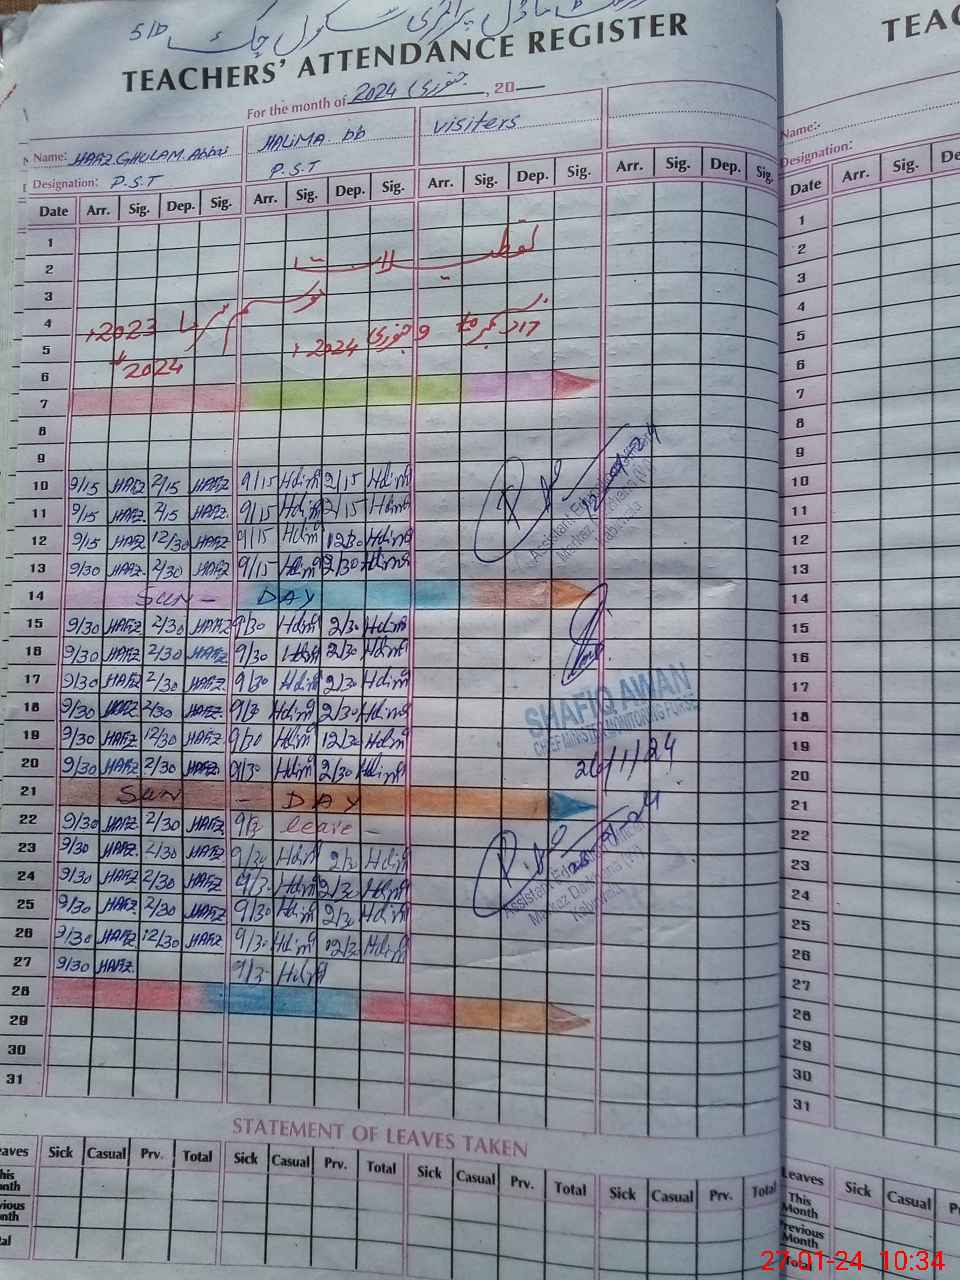 ماڈل پرائمری سکول چک 5/D
TEACHERS' ATTENDANCE REGISTER TEAC
For the month of جنوری 2024, 20
Name: HAFZ.GHULAM.Abbas HALIMA bb visiters Name:
Designation: P.S.T P.S.T Designation:
Date Arr. Sig. Dep. Sig. Arr. Sig. Dep. Sig. Arr. Sig. Dep. Sig. Arr. Sig. Dep. Sig. Date Arr. Sig. De
1 1
2 تعطیلات 2
3 موسم سرما 3
4 2023 17 دسمبر to 9 جنوری 2024 4
5 2024 5
6 6
7 7
8 8
9 9
10 9/15 HAFZ 2/15 HAFZ 9/15 Halima 2/15 Halima 10
11 9/15 HAFZ. 2/15 HAFZ 9/15 Halima 2/15 Halima 11
12 9/15 HAFZ 12/30 HAFZ 9/15 Halima 12/30 Halima 12
13 9/30 HAFZ. 2/30 HAFZ 9/15 Halima 2/30 Halima 13
Assistant Education
14 SUN - DAY 14
15 9/30 HAFZ 2/30 HAFZ 9/30 Halima 2/30 Halima 15
16 9/30 HAFZ 2/30 HAFZ 9/30 Halima 2/30 Halima 16
17 9/30 HAFZ 2/30 HAFZ 9/30 Halima 2/30 Halima 17
18 9/30 HAFZ 2/30 HAFZ. 9/30 Halima 2/30 Halima 18
SHAFIQ AWAN
CHIEF MINISTER MONITORING FORSE
19 9/30 HAFZ 12/30 HAFZ 9/30 Halima 12/30 Halima 19
20 9/30 HAFZ 2/30 HAFZ 9/30 Halima 2/30 Halima 26/1/24 20
21 SUN - DAY 21
22 9/30 HAFZ 2/30 HAFZ 9/3 leave - 22
23 9/30 HAFZ. 2/30 HAFZ 9/30 Halima 2/30 Halima 23
24 9/30 HAFZ 2/30 HAFZ 9/30 Halima 2/30 Halima 24
Assistant Education
25 9/30 HAFZ 2/30 HAFZ 9/30 Halima 2/30 Halima 25
26 9/30 HAFZ 12/30 HAFZ 9/30 Halima 12/30 Halima 26
27 9/30 HAFZ. 9/3 Halima 27
28 28
29 29
30 30
31 31
STATEMENT OF LEAVES TAKEN
eaves Sick Casual Prv. Total Sick Casual Prv. Total Sick Casual Prv. Total Sick Casual Prv. Total Leaves Sick Casual P
his onth This Month
vious nth Previous Month
tal Total
27-01-24 10:34